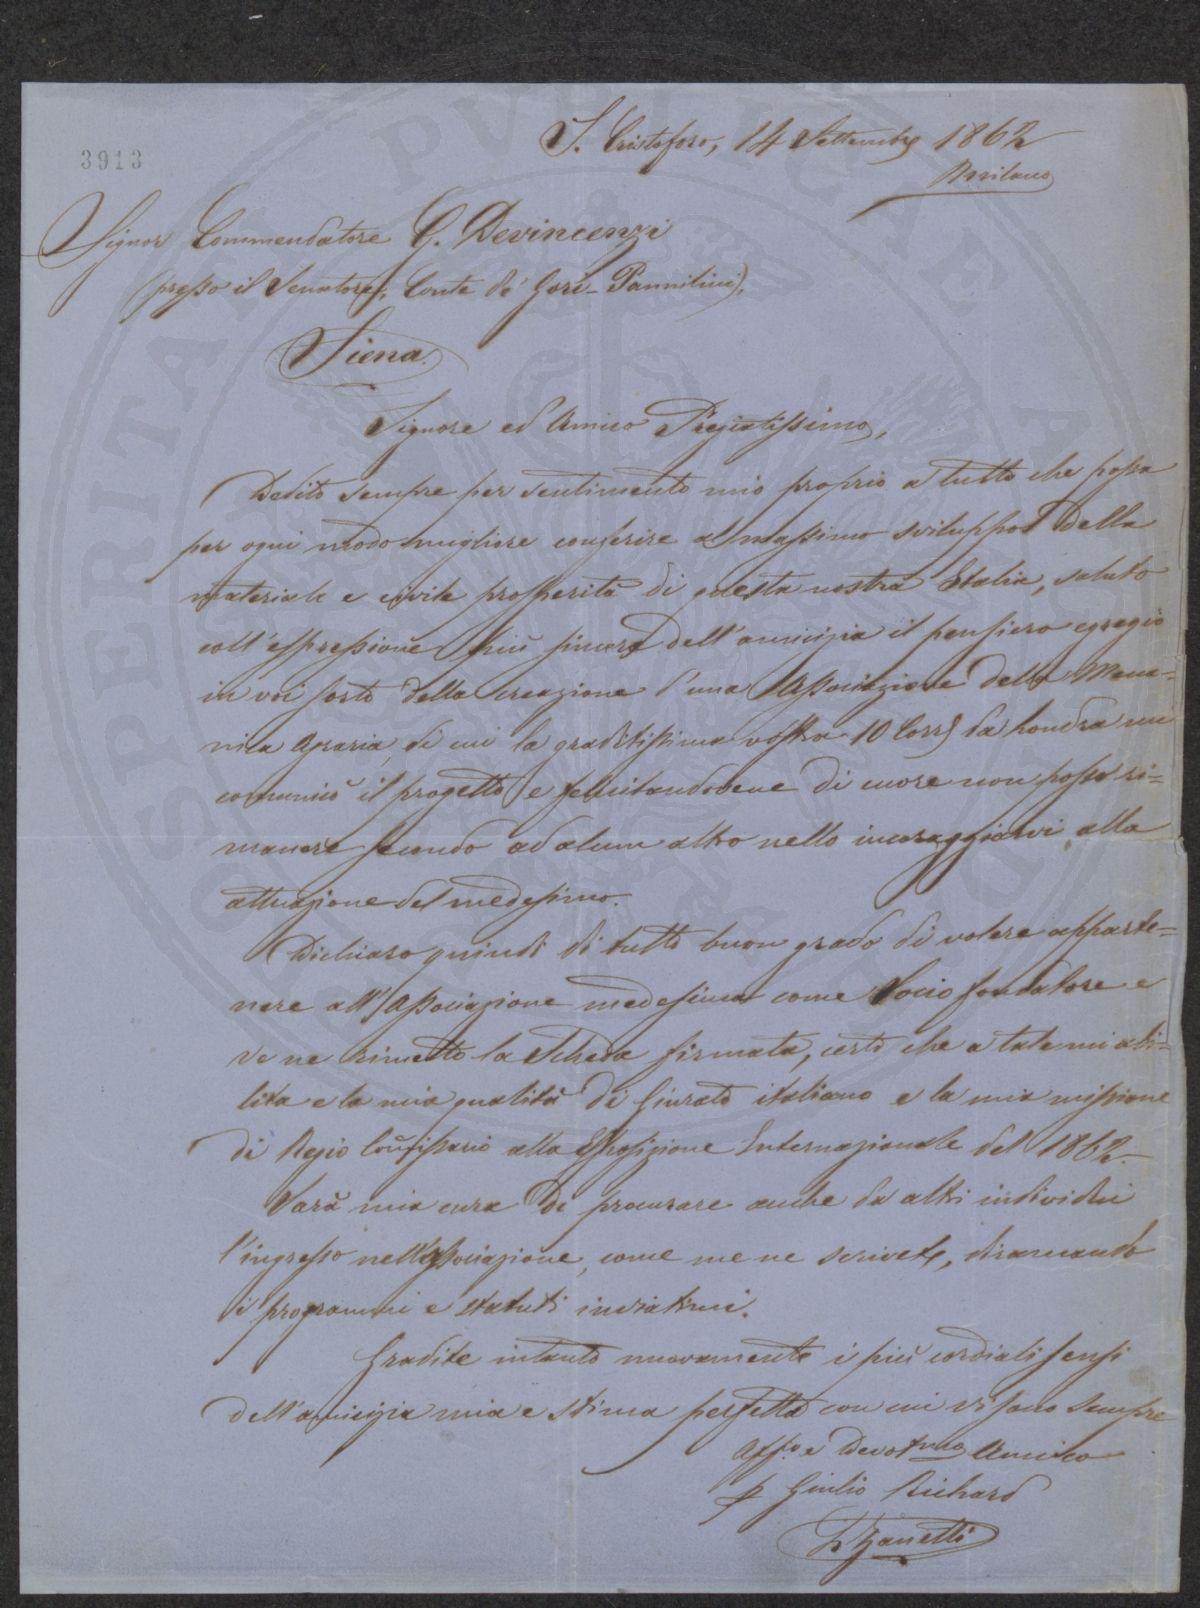 3913
S. Cristoforo, 14 Settembre 1862
Milano
Signor Commendatore G. Devincenzi
(presso il Senatore, Conte de' Gori-Pannilini),
Siena.
Signore ed Amico Pregiatissimo,
Dedito sempre per sentimento mio proprio a tutto che possa
per ogni modo migliore conferire al massimo sviluppo della
materiale e civile prosperità di questa nostra Italia, saluto
coll'espressione più sincera dell'amicizia il pensiero egregio
in voi sorto della creazione d'una Associazione della Mecca-
nica Agraria, di cui la graditissima vostra 10 Corre da Londra mi
comunicò il progetto e felicitandovene di cuore non posso ri=
manere secondo ad alcun altro nello incoraggiarvi alla
attuazione del medesimo.
Dichiaro quindi di tutto buon grado di volere apparte=
nere all'Associazione medesima come Socio fondatore e
ve ne rimetto la Scheda firmata, certo che a tale mi abi=
lita e la mia qualità di Giurato italiano e la mia missione
di Regio Com̃issario alla Esposizione Internazionale del 1862.
Sarà mia cura di procurare anche da altri individui
l'ingresso nell'Associazione, come me ne scrivete, diramando
i programmi e statuti inviatimi.
Gradite intanto nuovamente i più cordiali sensi
dell'amicizia mia e stima perfetta con cui vi sono sempre
Aff.o e Devot.mo Amico
p Giulio Richard
Zanetti
SPERITAS PVBLICAE